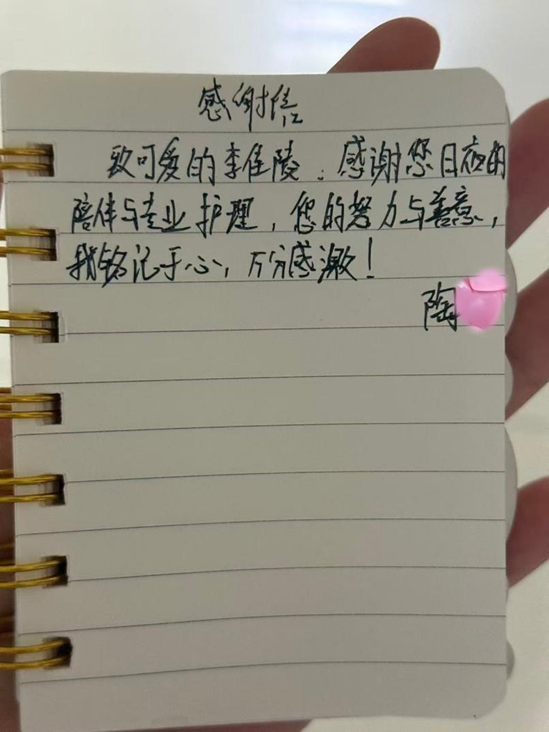 感谢信
致可爱的李佳陵：感谢您日夜的
陪伴与专业护理，您的努力与善意，
我铭记于心，万分感激！
陶